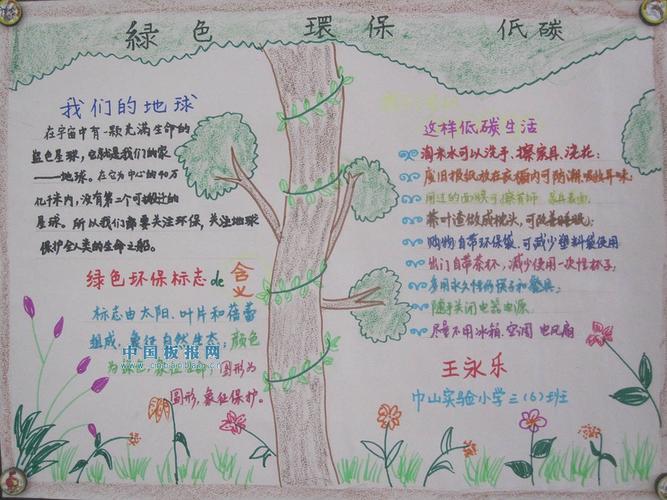 綠色 環保 低碳
我们的地球
在宇宙中有一颗充满生命的
蓝色星球,它就是我们的家
——地球。在它为中心的40万
亿千米内,没有第二个可搬迁的
星球。所以我们都要关注环保,关注地球
保护全人类的生命之船。
绿色环保标志de含义
标志由太阳、叶片和蓓蕾
组成,象征自然生态;颜色
为绿色,象征生命;图形为
圆形,象征保护。
中国板报网
www.cnbaobao.cn
这样低碳生活
淘米水可以洗手、擦家具、浇花;
废旧报纸放在衣橱内可防潮、吸收异味;
用过的面膜可擦首饰、家具表面
茶叶渣做成枕头,可改善睡眠;
购物自带环保袋,可减少塑料袋使用
出门自带茶杯,减少使用一次性杯子;
多用永久性的筷子和餐具;
随手关闭电器电源
尽量不用冰箱、空调、电风扇
王永乐
巾山实验小学三(6)班